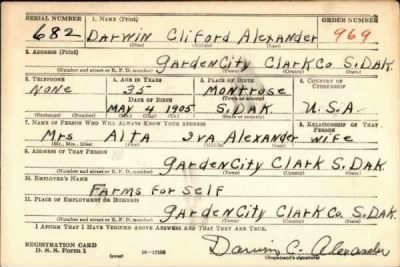 SERIAL NUMBER 1. NAME (Print) ORDER NUMBER
682 Darwin Cliford Alexander 969
(First) (Middle) (Last)
2. ADDRESS (Print)
Garden City Clark Co S. Dak.
(Number and street or R. F. D. number) (Town) (County) (State)
3. TELEPHONE 4. AGE IN YEARS 5. PLACE OF BIRTH 6. COUNTRY OF CITIZENSHIP
None 35 Montrose
DATE OF BIRTH (Town or county)
May 4 1905 S. Dak. U.S.A.
(Mo.) (Day) (Yr.) (State or country)
7. NAME OF PERSON WHO WILL ALWAYS KNOW YOUR ADDRESS 8. RELATIONSHIP OF THAT PERSON
Mrs Alta Iva Alexander wife
(Mr., Mrs., Miss) (First) (Middle) (Last)
9. ADDRESS OF THAT PERSON
Garden City Clark S. Dak.
(Number and street or R. F. D. number) (Town) (County) (State)
10. EMPLOYER'S NAME
Farms for Self
11. PLACE OF EMPLOYMENT OR BUSINESS
Garden City Clark Co. S. Dak.
(Number and street or R. F. D. number) (Town) (County) (State)
I AFFIRM THAT I HAVE VERIFIED ABOVE ANSWERS AND THAT THEY ARE TRUE.
REGISTRATION CARD
D. S. S. Form 1 (over) Darwin C. Alexander
(Registrant's signature)